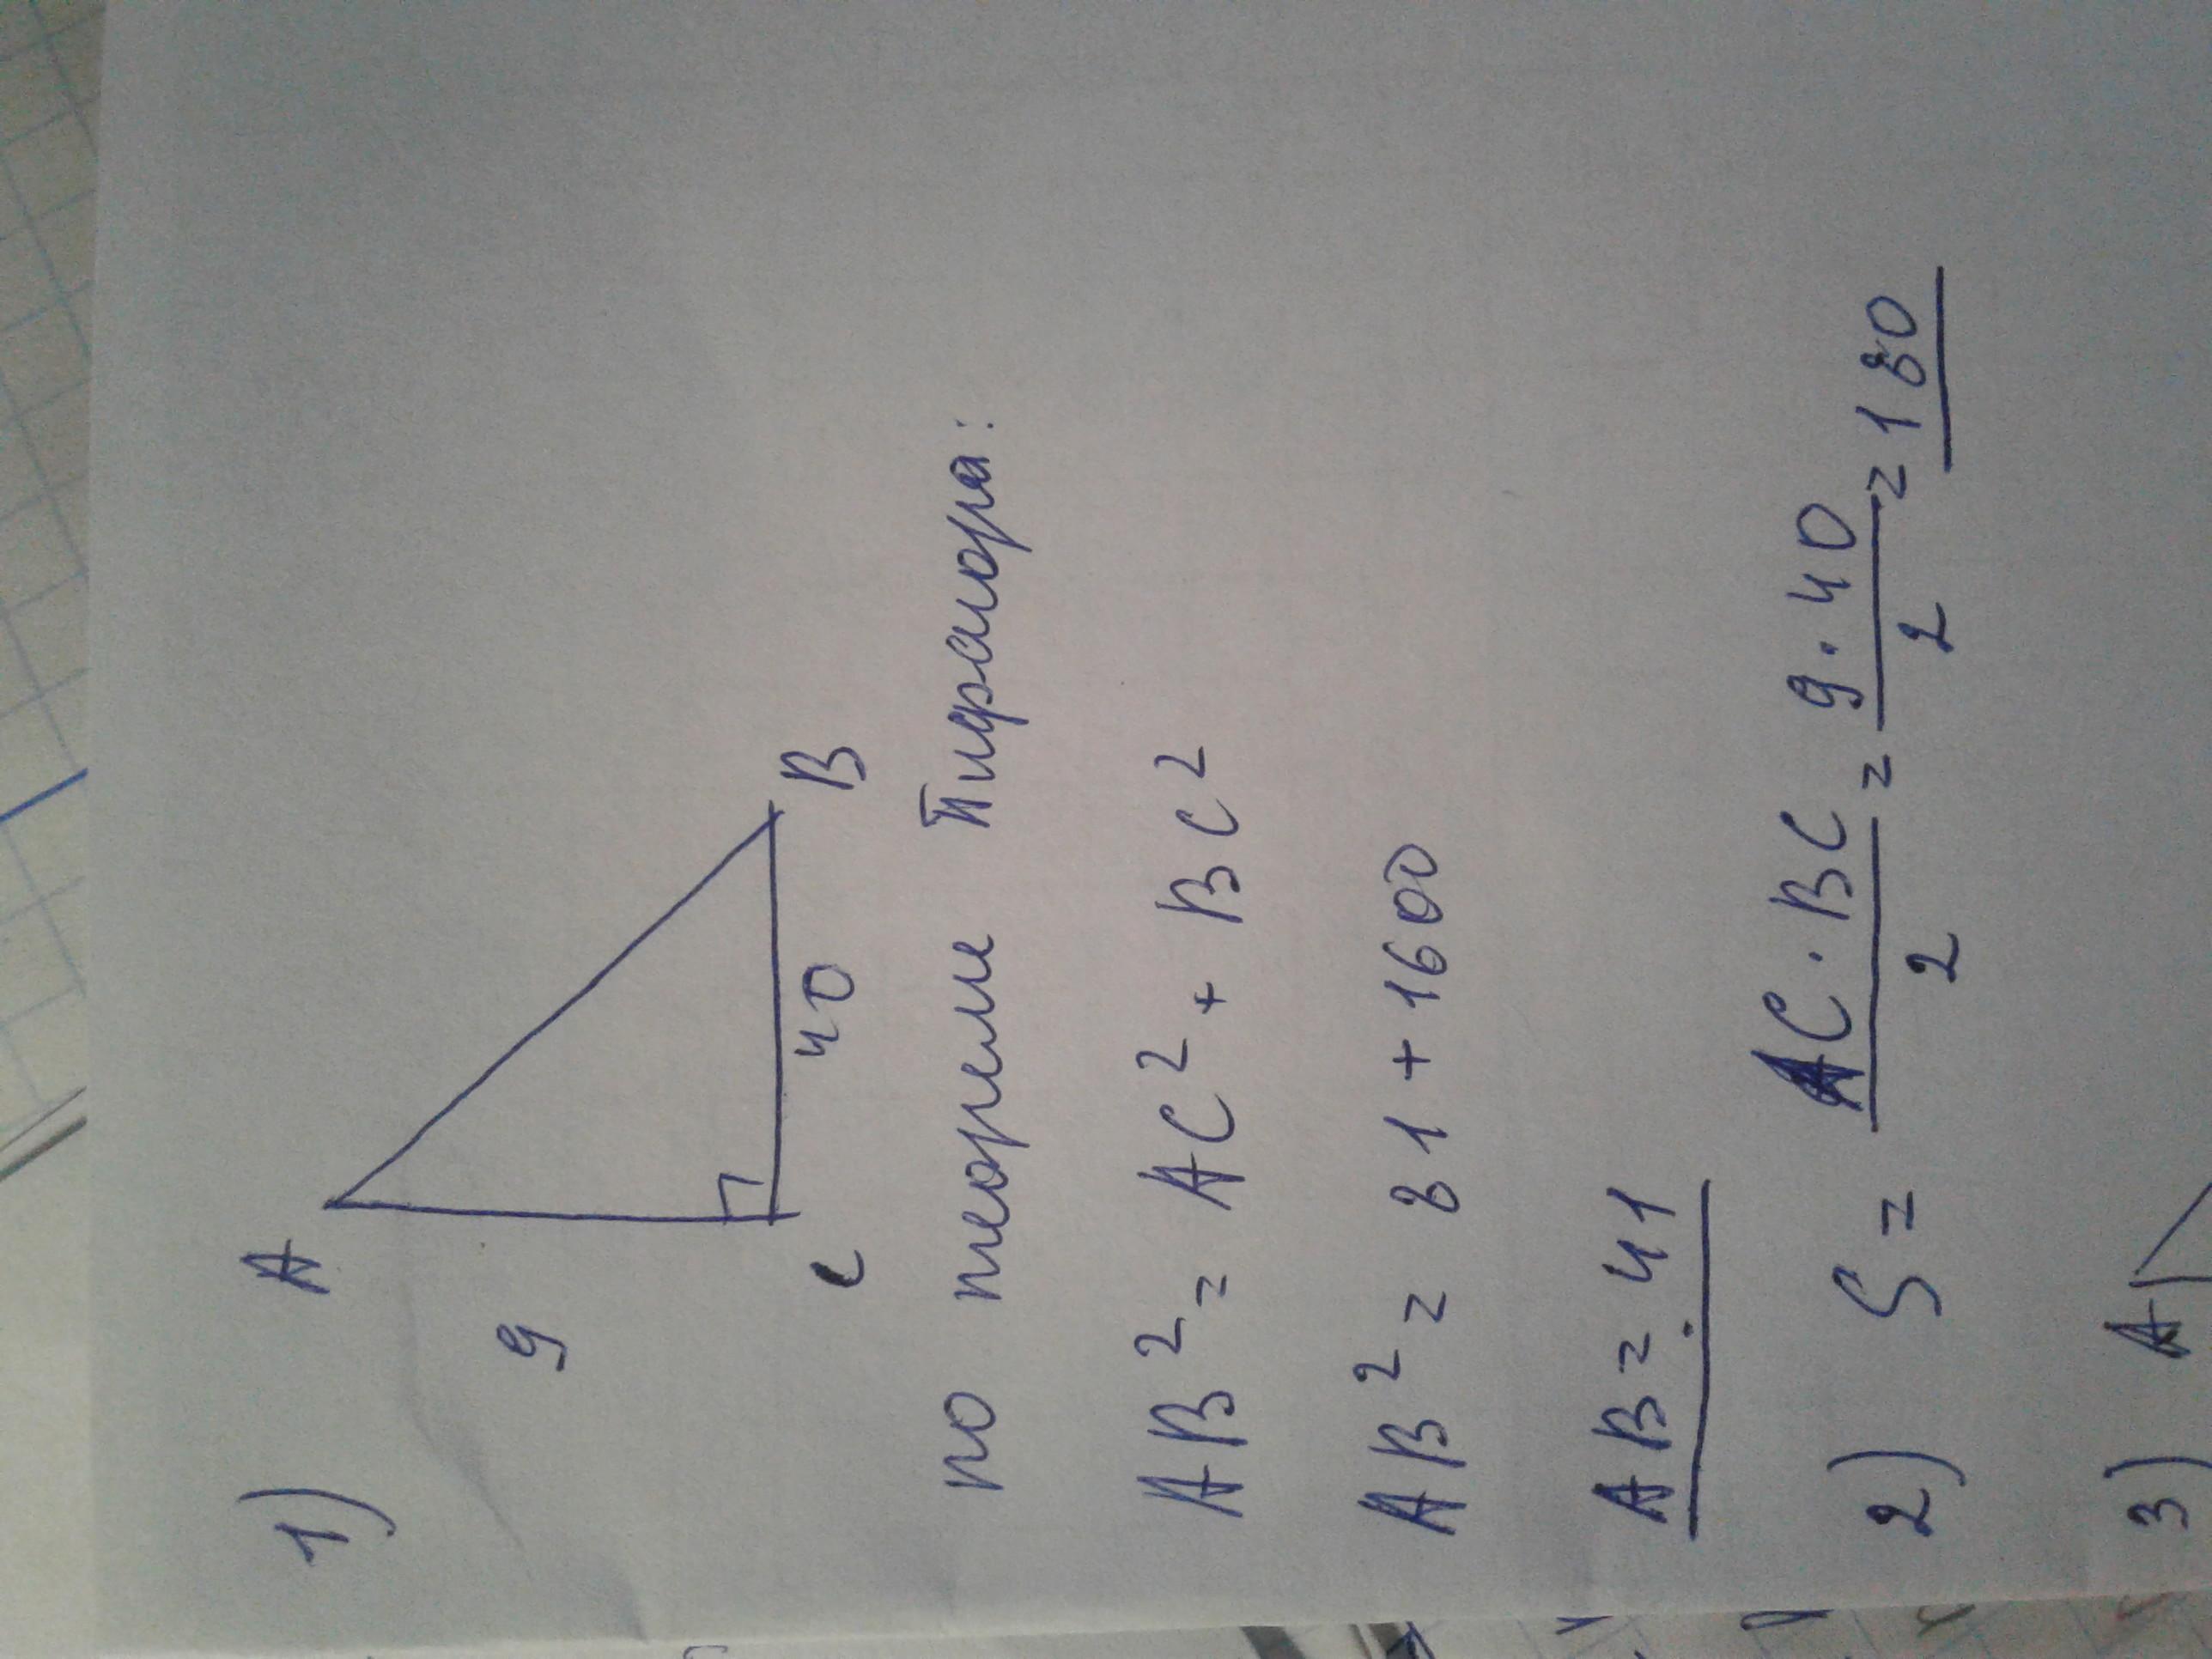 1)
A
9
C
40
B
по теореме Пифагора:
AB² = AC² + BC²
AB² = 81 + 1600
AB = 41
2) S = AC · BC / 2 = 9 · 40 / 2 = 180
3) A